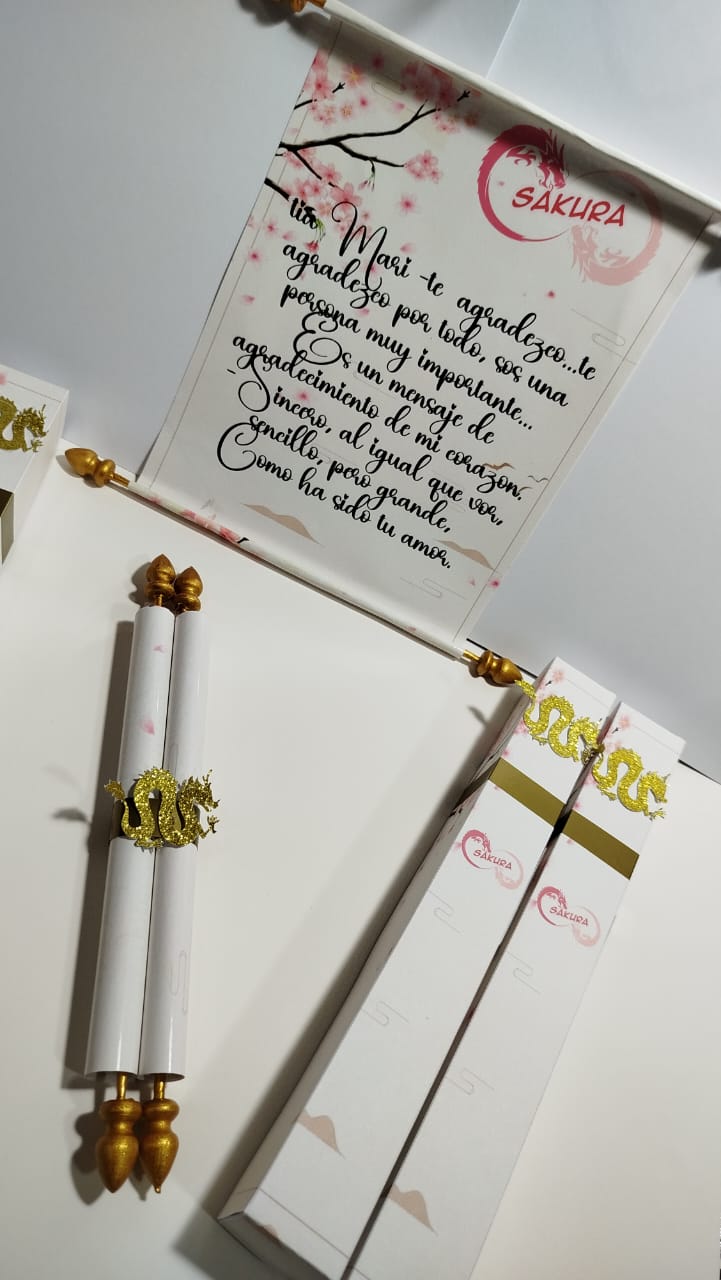 SAKURA
tia Mari -te agradezco...te
agradezco por todo, sos una
persona muy importante...
Es un mensaje de
agradecimiento de mi corazon.
-Sincero, al igual que vor,
sencillo, pero grande,
Como ha sido tu amor.
SAKURA
SAKURA